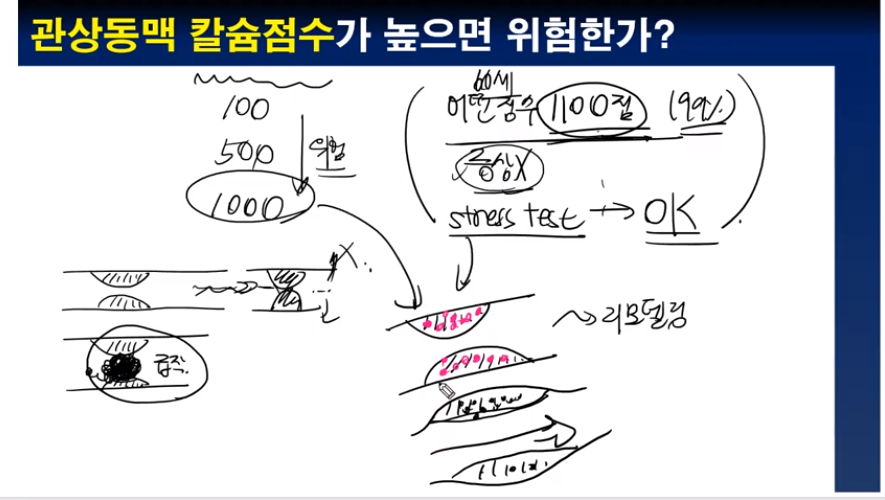 관상동맥 칼슘점수가 높으면 위험한가?
100
500
위험
1000
60세
점수 1100점 (99%)
증상X
stress test → OK
X
리모델링